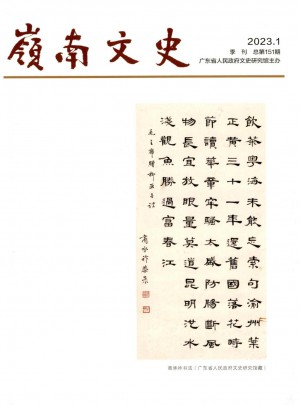 嶺南文史
2023.1
季 刊 总第151期
广东省人民政府文史研究馆主办
飲茶粤海未能忘索句渝州葉
正黄三十一年還舊國落花時
節讀華章牢騷太盛防腸斷風
物長宜放眼量莫道昆明池水
淺觀魚勝過富春江
毛主席贈柳亚子诗
商承祚恭录
商承祚书法（广东省人民政府文史研究馆藏）